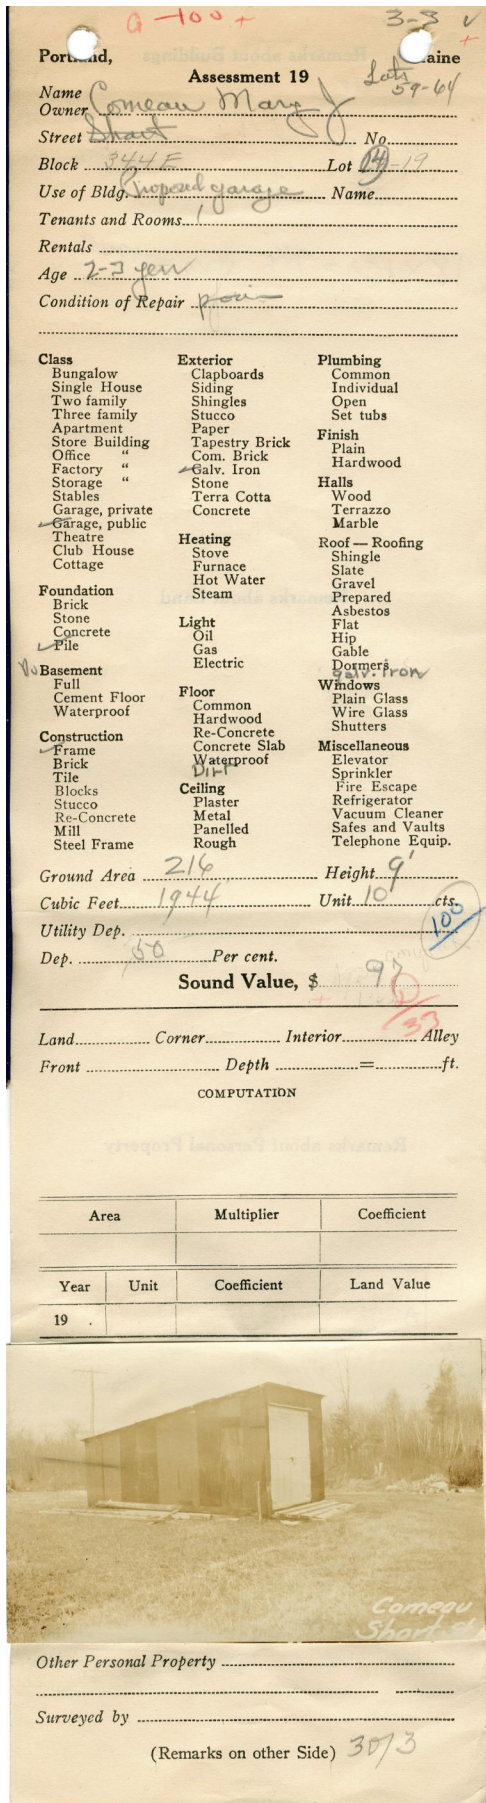 G-100 +
3-3 ✓
+
Portland, Maine
Assessment 19
Lots
59-64
Name
Owner Comeau Mary J
Street Short No.
Block 344E Lot 14-19
Use of Bldg. Proposed garage Name
Tenants and Rooms 1
Rentals
Age 2-3 year
Condition of Repair poor
Class
Bungalow
Single House
Two family
Three family
Apartment
Store Building
Office "
Factory "
Storage "
Stables
Garage, private
✓ Garage, public
Theatre
Club House
Cottage
Foundation
Brick
Stone
Concrete
✓ Pile
No Basement
Full
Cement Floor
Waterproof
Construction
✓ Frame
Brick
Tile
Blocks
Stucco
Re-Concrete
Mill
Steel Frame
Exterior
Clapboards
Siding
Shingles
Stucco
Paper
Tapestry Brick
Com. Brick
✓ Galv. Iron
Stone
Terra Cotta
Concrete
Heating
Stove
Furnace
Hot Water
Steam
Light
Oil
Gas
Electric
Floor
Common
Hardwood
Re-Concrete
Concrete Slab
Waterproof
Dirt
Ceiling
Plaster
Metal
Panelled
Rough
Plumbing
Common
Individual
Open
Set tubs
Finish
Plain
Hardwood
Halls
Wood
Terrazzo
Marble
Roof — Roofing
Shingle
Slate
Gravel
Prepared
Asbestos
Flat
Hip
Gable
Dormers
galv. Iron
Windows
Plain Glass
Wire Glass
Shutters
Miscellaneous
Elevator
Sprinkler
Fire Escape
Refrigerator
Vacuum Cleaner
Safes and Vaults
Telephone Equip.
Ground Area 216 Height 9'
Cubic Feet 1944 Unit 10 cts.
100
Utility Dep.
Dep. 50 Per cent.
Sound Value, $ 97
33
Land Corner Interior Alley
Front Depth = ft.
COMPUTATION
Area Multiplier Coefficient
Year Unit Coefficient Land Value
19 .
Comeau
Short St
Other Personal Property
Surveyed by
(Remarks on other Side) 30/3